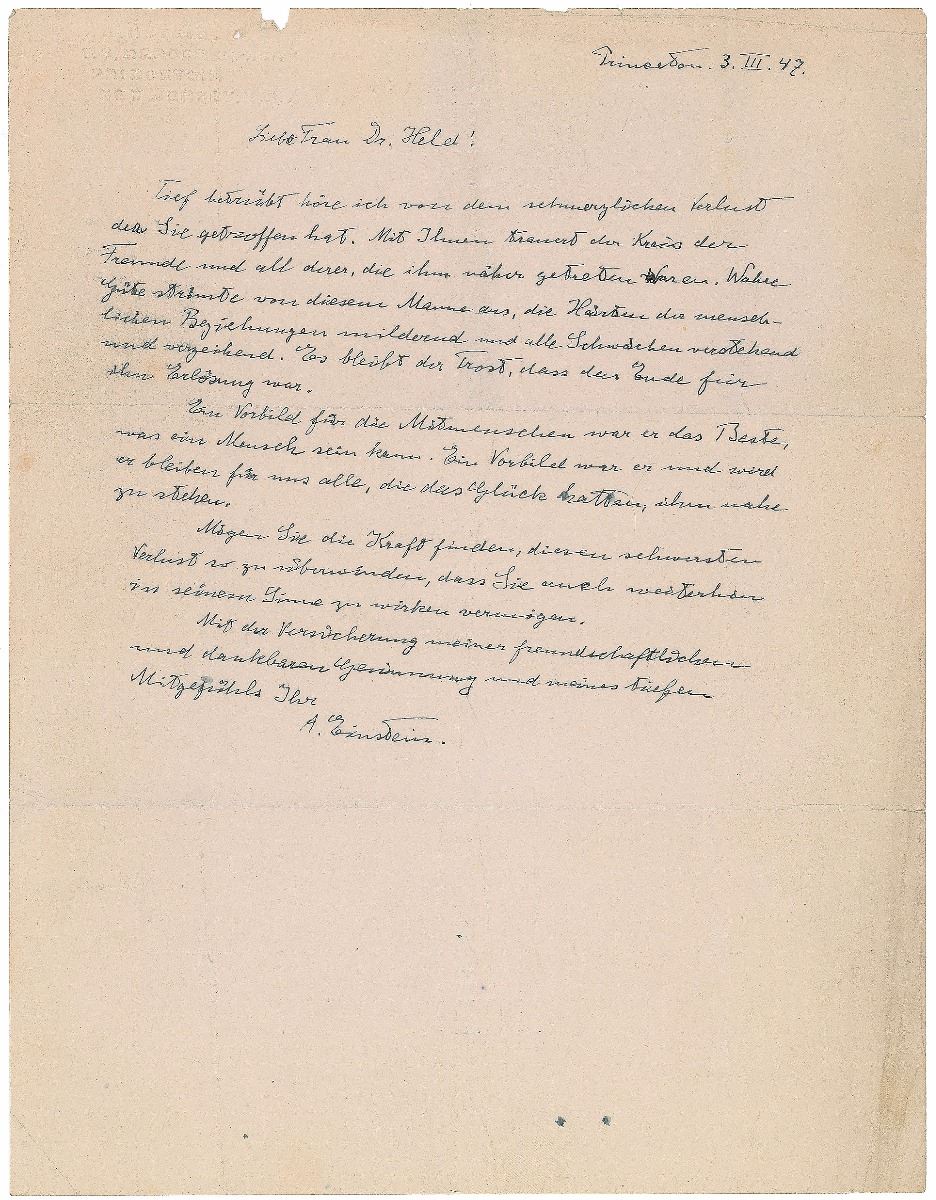 Princeton. 3. III. 47.
Liebe Frau Dr. Held!
Tief betrübt höre ich von dem schmerzlichen Verlust
der Sie getroffen hat. Mit Ihnen trauert der Kreis der
Freunde und all derer, die ihm näher getreten waren. Wahre
Güte strömte von diesem Manne aus, die Härten der mensch-
lichen Beziehungen mildernd und alle Schwächen verstehend
und verzeihend. Es bleibt der Trost, dass das Ende für
ihn Erlösung war.
Ein Vorbild für die Mitmenschen war er das Beste,
was ein Mensch sein kann. Ein Vorbild war er und wird
er bleiben für uns alle, die das Glück hatten, ihm nahe
zu stehen.
Mögen Sie die Kraft finden, diesen schwersten
Verlust so zu überwinden, dass Sie auch weiterhin
in seinem Sinne zu wirken vermögen.
Mit der Versicherung meiner freundschaftlichen
und dankbaren Gesinnung und meines tiefen
Mitgefühls Ihr
A. Einstein.